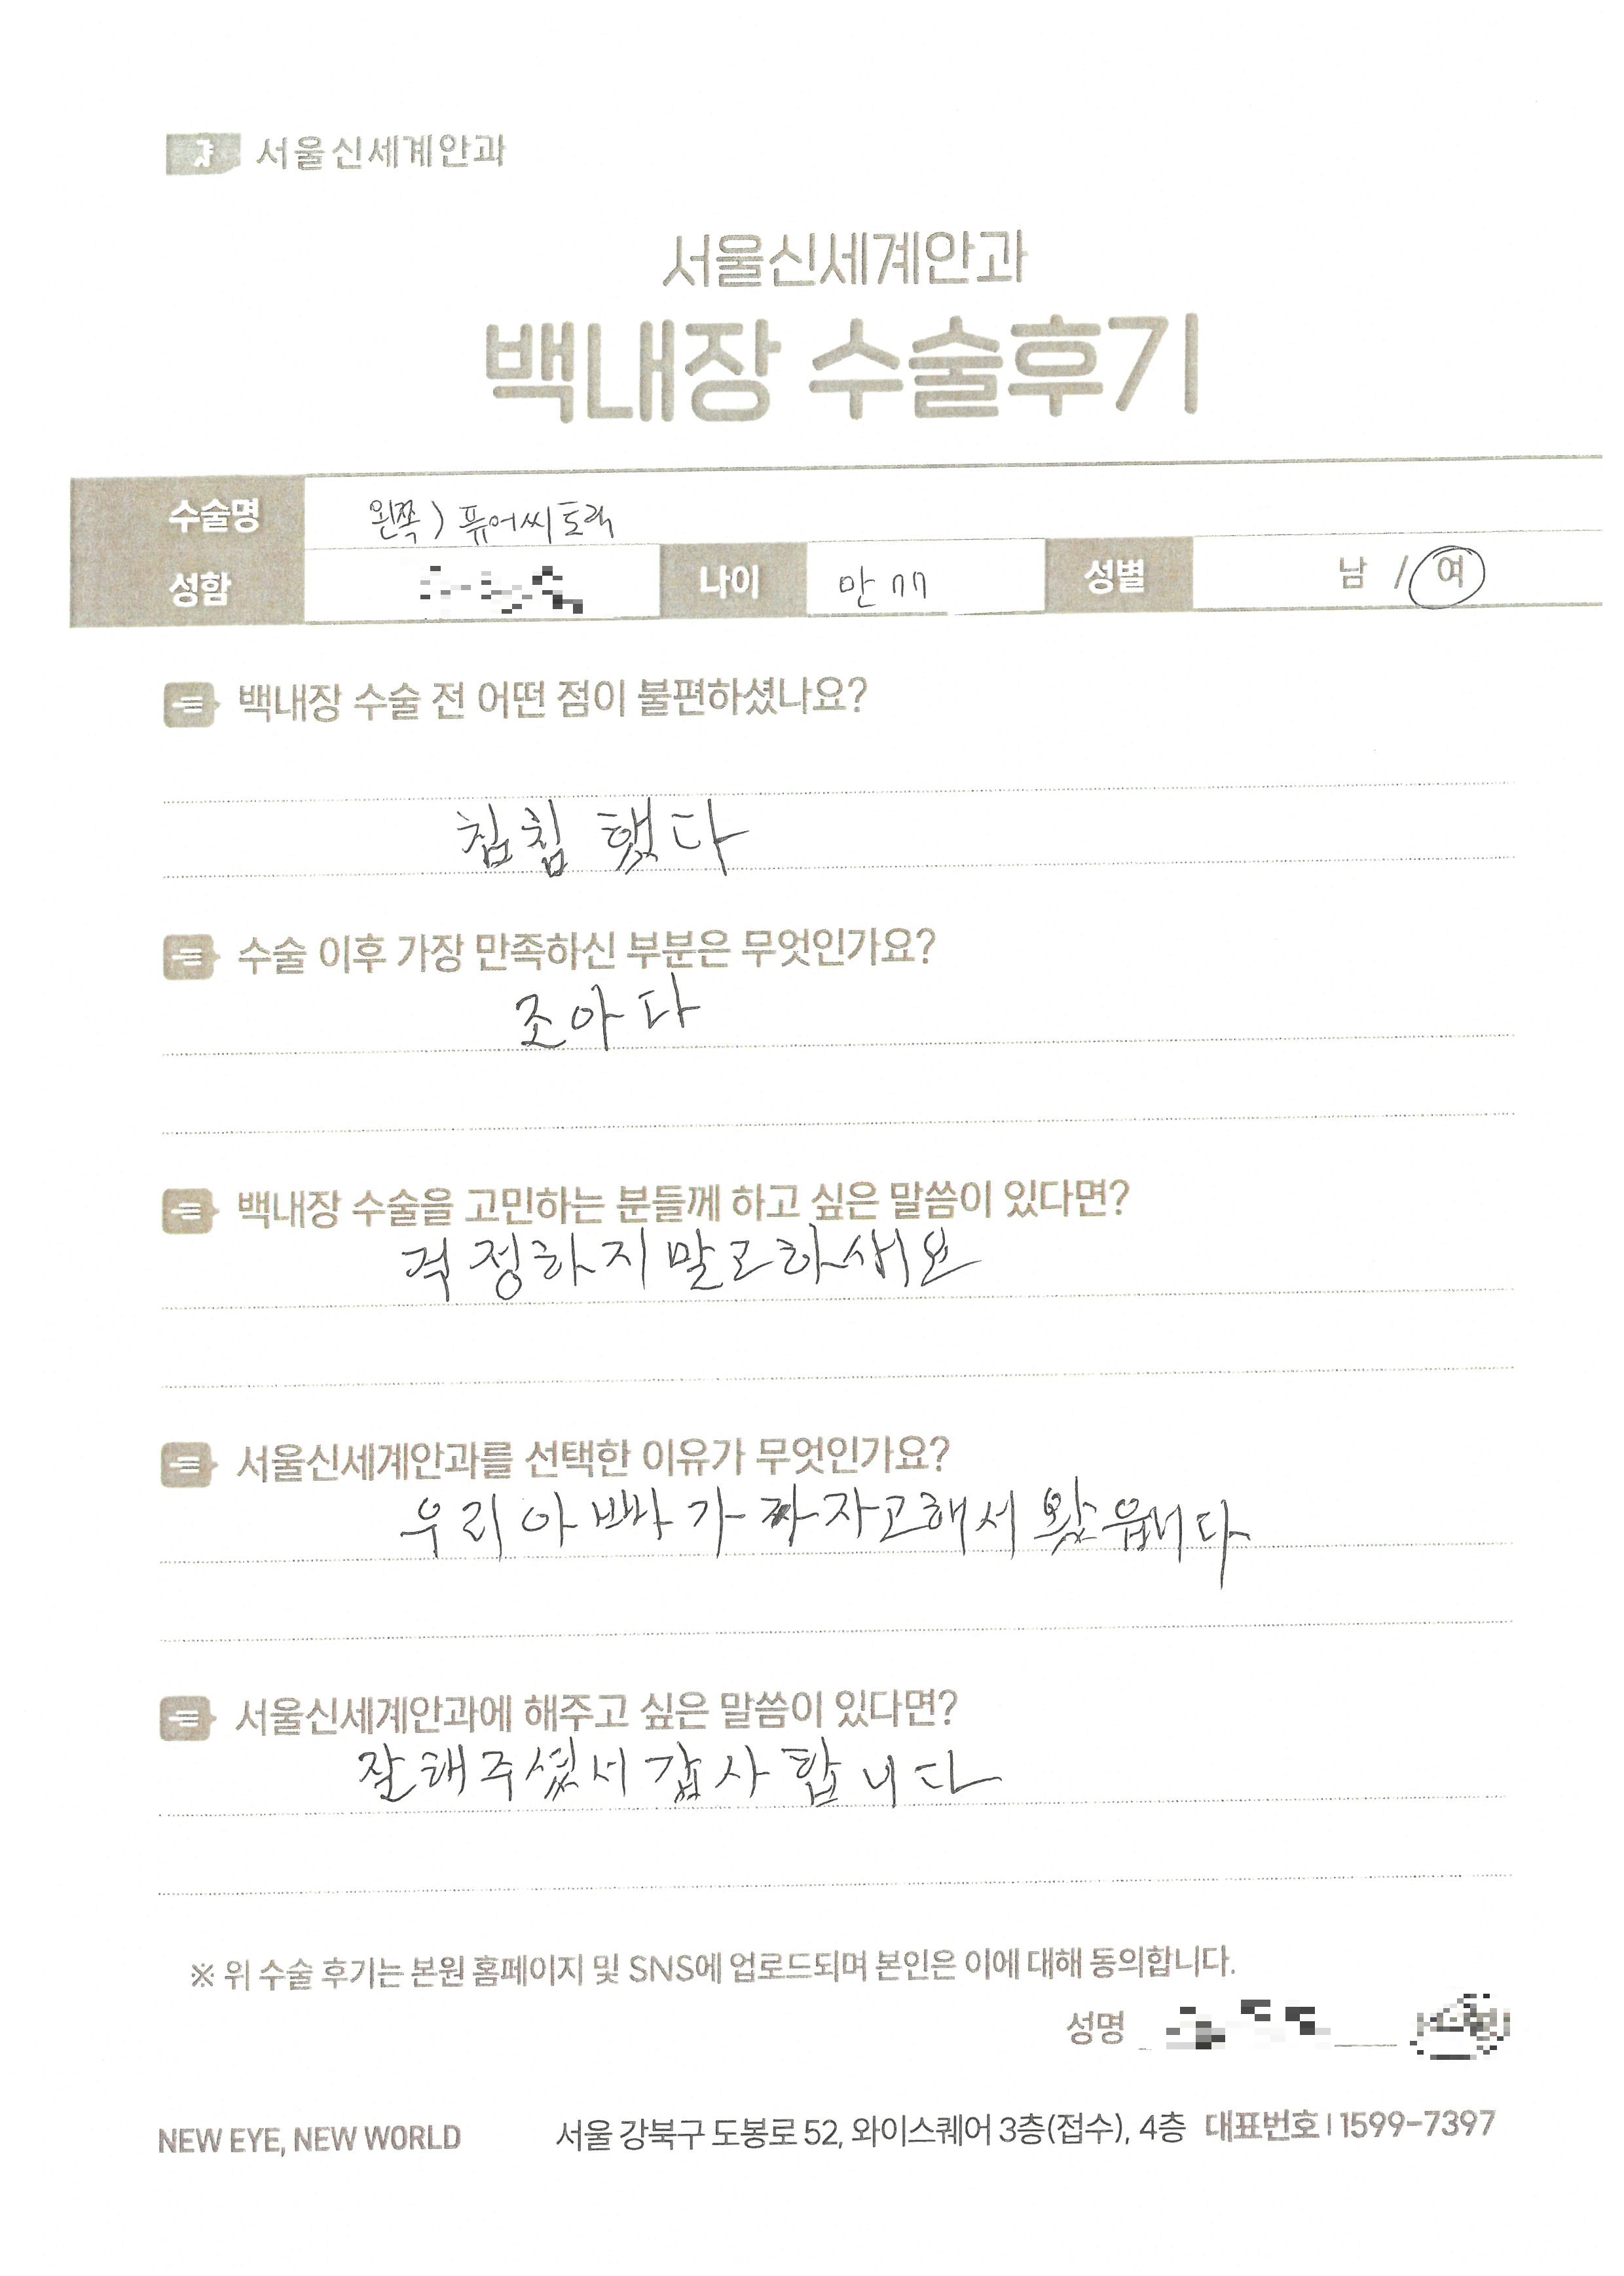 서울신세계안과
서울신세계안과
백내장 수술후기
수술명 왼쪽) 퓨어씨토릭
성함 나이 만 77 성별 남 / 여
백내장 수술 전 어떤 점이 불편하셨나요?
침침했다
수술 이후 가장 만족하신 부분은 무엇인가요?
조아다
백내장 수술을 고민하는 분들께 하고 싶은 말씀이 있다면?
걱정하지말고하새요
서울신세계안과를 선택한 이유가 무엇인가요?
우리아빠가 자고해서 왔읍니다
서울신세계안과에 해주고 싶은 말씀이 있다면?
잘해주셨서 감사합니다
※ 위 수술 후기는 본원 홈페이지 및 SNS에 업로드되며 본인은 이에 대해 동의합니다.
성명
NEW EYE, NEW WORLD 서울 강북구 도봉로 52, 와이스퀘어 3층(접수), 4층 대표번호 | 1599-7397